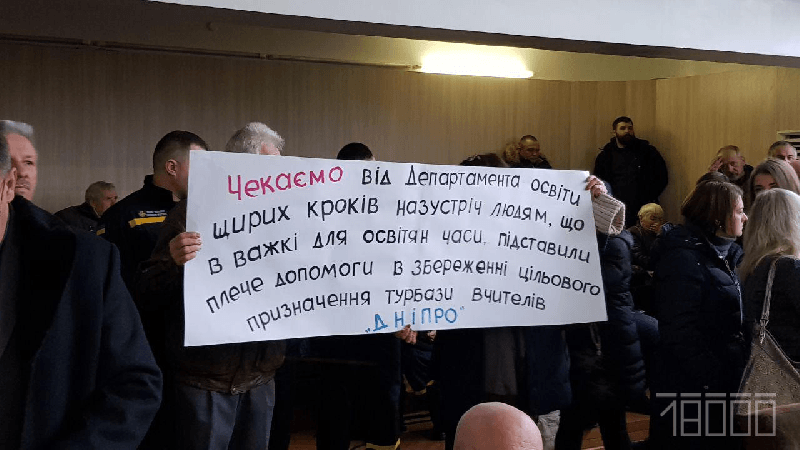 Чекаємо від Департамента освіти
щирих кроків назустріч людям, що
в важкі для освітян часи, підставили
плече допомоги в збереженні цільового
призначення турбази вчителів
„Дніпро"
18000